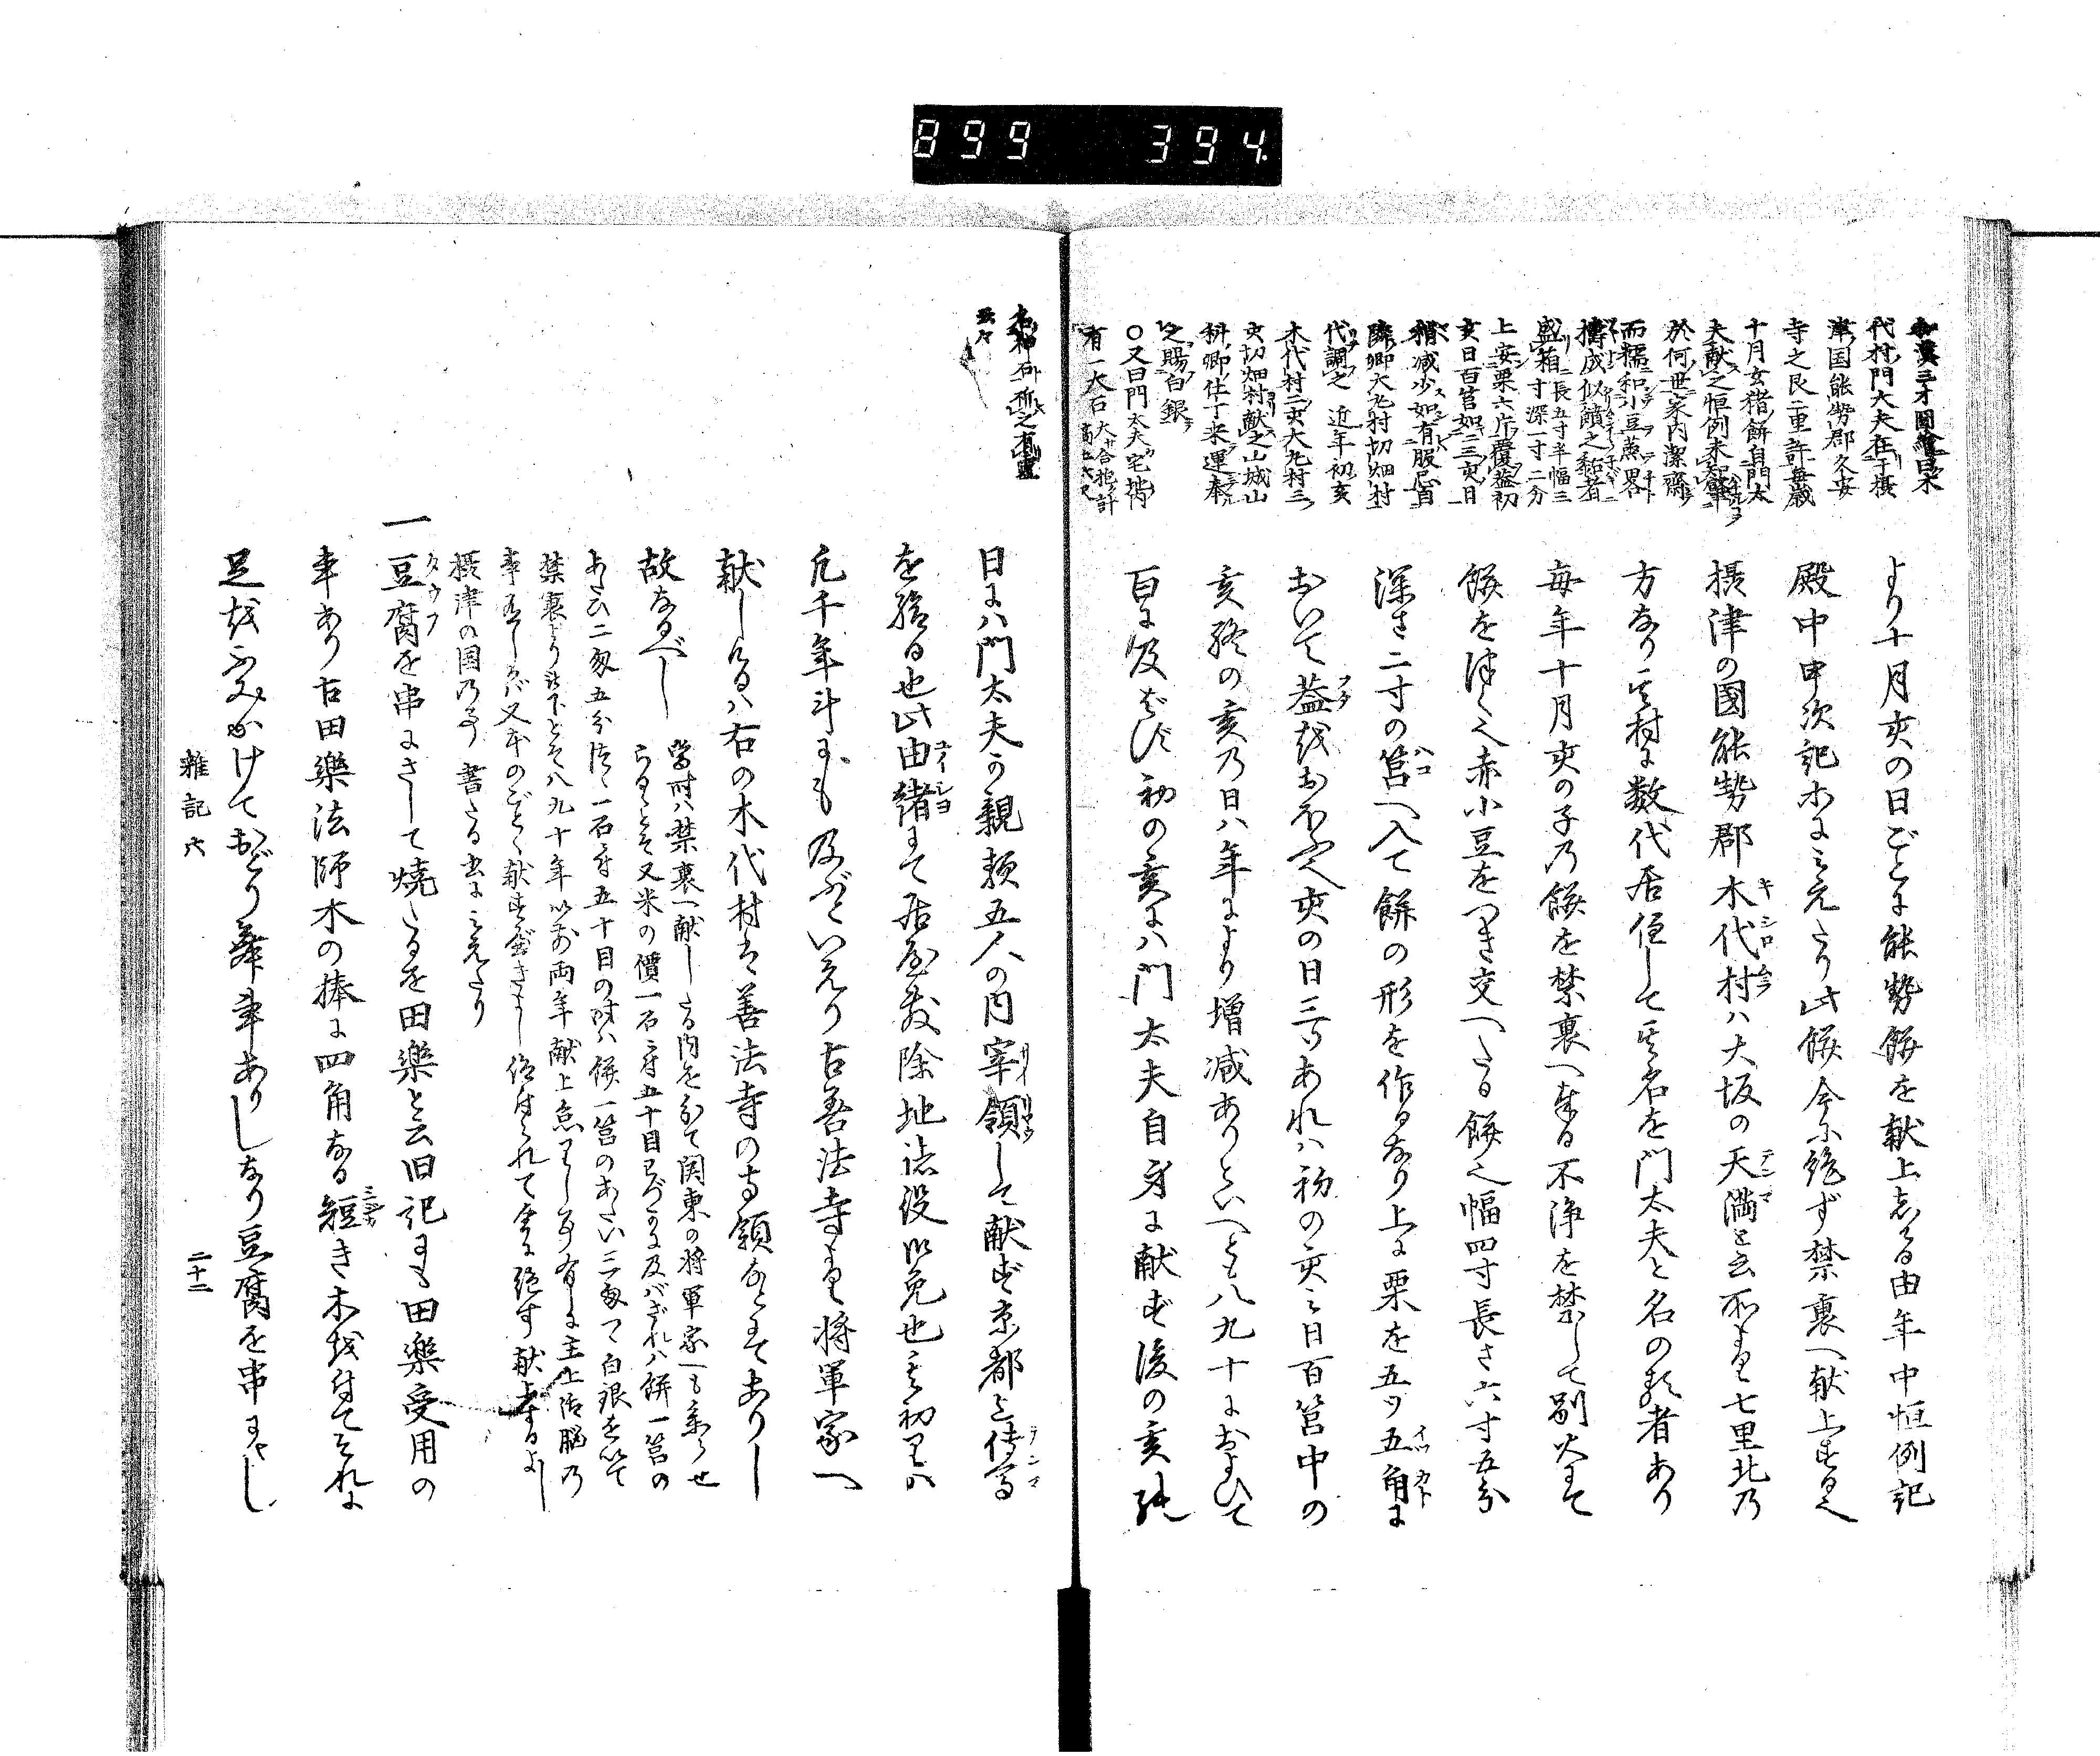 899 394
和漢三才圖繪曰木
代村門大夫在于摂
津国能勢郡久安
寺之艮二里許毎歳
十月玄猪餅自門太
夫献之恒例未知肇
於何世家内潔齋
而糯和小豆蒸畧
擣成似饋之黏者
盛箱長五寸半幅三寸深一寸二分
上安栗六片覆蓋初
亥日百筥如三亥日
稍減少如有服忌自
隣郷大丸村切畑村
代調之近年初亥
木代村二亥大丸村三
亥切畑村献之山城山
科郷仕丁来運奉
之賜白銀
○又曰門太夫宅傍
有一大石大サ合抱計高七六尺
より十月亥の日ごとに能勢餅を献上する由年中恒例記
殿中申次記等にみえたり此餅今に絶ず禁裏へ献上する也
摂津の國能勢郡木代村ハ大坂の天満と云所より七里北の
方なり其村に数代居住して其名を門太夫と名の者あり
毎年十月亥の子の餅を禁裏へ奉る不浄を禁して別火にて
餅を津く也赤小豆をつき交へたる餅也幅四寸長さ六寸五分
深さ二寸の筥へ入て餅の形を作るなり上に栗を五ツ五角に
おいて蓋をおほふ也亥の日三つあれハ初の亥ミ日百筥中の
亥終の亥の日ハ年により増減ありといへとも八九十におよひて
百に及ばず初の亥にハ門太夫自身に献ず後の亥終
日にハ門太夫の親類五人の内宰領して献ず京都より傳馬
を給る也此由緒にて居屋敷除地諸役御免也其初ハ
凡千年斗にも及ぶといえり古善法寺より将軍家へ
献しけるハ右の木代村も善法寺の寺領なとにてありし
故なるべし
當時ハ禁裏へ献したる内を分て関東の将軍家へも参らせ
らるゝとそ又米の價一石ニ付五十目
に及バざれハ餅一筥の
あたひ二匁五分
一石ニ付五十目の時ハ餅一筥のあたい三匁
白銀を以て
禁裏より
八九十年以前両年献上怠
主上御脳の
事
又本のごとく献ずべきよし仰付られて今に絶す献上するよし
摂津の国の
書たる書にみえたり
一豆腐を串にさして焼たるを田樂と云旧記にも田樂受用の
事あり古田樂法師木の棒に四角なる短き木を付てそれに
足をふみかけておどり舞事ありしなり豆腐を串にさし
雑記六
二十二